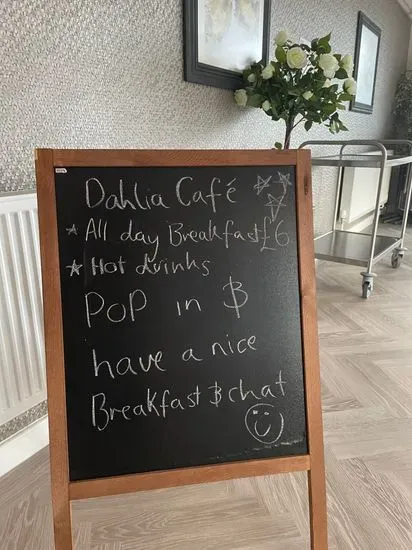 Dahlia Café
All day Breakfast £6
Hot drinks
POP in &
have a nice
Breakfast & chat